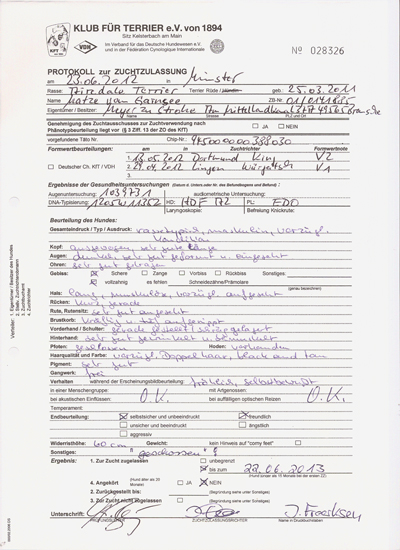 KLUB FÜR TERRIER e.V. von 1894
Sitz Kelsterbach am Main
Im Verband für das Deutsche Hundewesen e.V.
und in der Fédération Cynologique Internationale
KfT VDH
No 028326
PROTOKOLL zur ZUCHTZULASSUNG
am 23.06.2012 in Münster
Rasse: Airedale Terrier Terrier Rüde / geb.: 25.03.2011
Name: Matze vom ZB-Nr.: 01/0141635
Eigentümer / Besitzer: Meyer zu Strohe Am Mittellandkanal 49565 Bramsche
Genehmigung des Zuchtausschusses zur Zuchtverwendung nach
Phänotypbeurteilung liegt vor (§ 3 Ziff. 13 der ZO des KfT) JA NEIN
vorgefundene Täto-Nr. Chip-Nr.:
Formwertbeurteilungen: am in Zuchtrichter Formwertnote
1. 13.05.2012 Dortmund King V2
Deutscher Ch. KfT / VDH 2. 29.04.2012 Lingen V1
Ergebnisse der Gesundheitsuntersuchungen
Augenuntersuchung: 1039731 audiometrische Untersuchung
DNA-Typisierung: HD: HDF A2 PL: ED0
Laryngoskopie: Befund Knickrute:
Beurteilung des Hundes:
Gesamteindruck / Typ / Ausdruck: rassetypisch, maskulin, vorzügl.
Kopf: ausgewogen, sehr gute Länge
Augen: dunkel, sehr gut geformt u. eingesetzt
Ohren: sehr gut getragen
Gebiss: Schere Zange Vorbiss Rückbiss Sonstiges:
vollzahnig es fehlen Schneidezähne/Prämolare
(genau bezeichnen)
Hals: lang, muskulös, vorzügl. aufgesetzt
Rücken: kurz, gerade
Rute, Rutensitz: sehr gut angesetzt
Brustkorb: kräftig u. tief
Vorderhand / Schulter: gerade gestellt
Hinterhand: sehr gut gewinkelt u. bemuskelt
Pfoten: geschlossen Hoden: vorhanden
Haarqualität und Farbe: vorzügl. Doppelhaar, black and tan
Pigment: sehr gut
Gangwerk: frei
Verhalten während der Erscheinungsbildbeurteilung: fröhlich, selbstbewußt
in einer Menschengruppe: mit Artgenossen:
bei akustischen Einflüssen: O.K. bei auffälligen optischen Reizen: O.K.
Temperament:
Endbeurteilung: selbstsicher und unbeeindruckt freundlich
unsicher und beeindruckt ängstlich
aggressiv
Widerristhöhe: 60 cm Gewicht: kein Hinweis auf "corny feet"
Sonstiges: "geschossen"
Ergebnis: 1. Zur Zucht zugelassen unbegrenzt
bis zum 22.06.2013
4. Angekört JA NEIN
2. Zurückgestellt bis: (Begründung siehe unter Sonstiges)
3. Zur Zucht nicht zugelassen (Begründung siehe unter Sonstiges)
Unterschrift:
ZUCHTZULASSUNGSRICHTER Name in Druckbuchstaben
Verteiler: 1. Eigentümer / Besitzer des Hundes
2. Stellv. Zuchtbuchamt
3. Zuchtbuchamt
4. Zuchtrichter